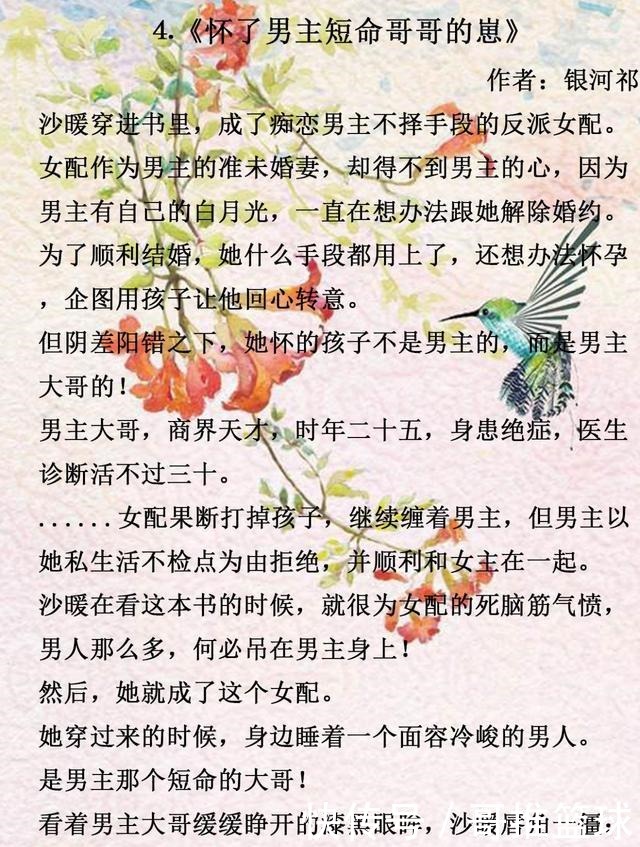 4.《怀了男主短命哥哥的崽》
作者：银河祁
沙暖穿进书里，成了痴恋男主不择手段的反派女配。
女配作为男主的准未婚妻，却得不到男主的心，因为
男主有自己的白月光，一直在想办法跟她解除婚约。
为了顺利结婚，她什么手段都用上了，还想办法怀孕
，企图用孩子让他回心转意。
但阴差阳错之下，她怀的孩子不是男主的，而是男主
大哥的！
男主大哥，商界天才，时年二十五，身患绝症，医生
诊断活不过三十。
......女配果断打掉孩子，继续缠着男主，但男主以
她私生活不检点为由拒绝，并顺利和女主在一起。
沙暖在看这本书的时候，就很为女配的死脑筋气愤，
男人那么多，何必吊在男主身上！
然后，她就成了这个女配。
她穿过来的时候，身边睡着一个面容冷峻的男人。
是男主那个短命的大哥！
看着男主大哥缓缓睁开的漆黑眼眸，沙暖
快传号/哥推篮球